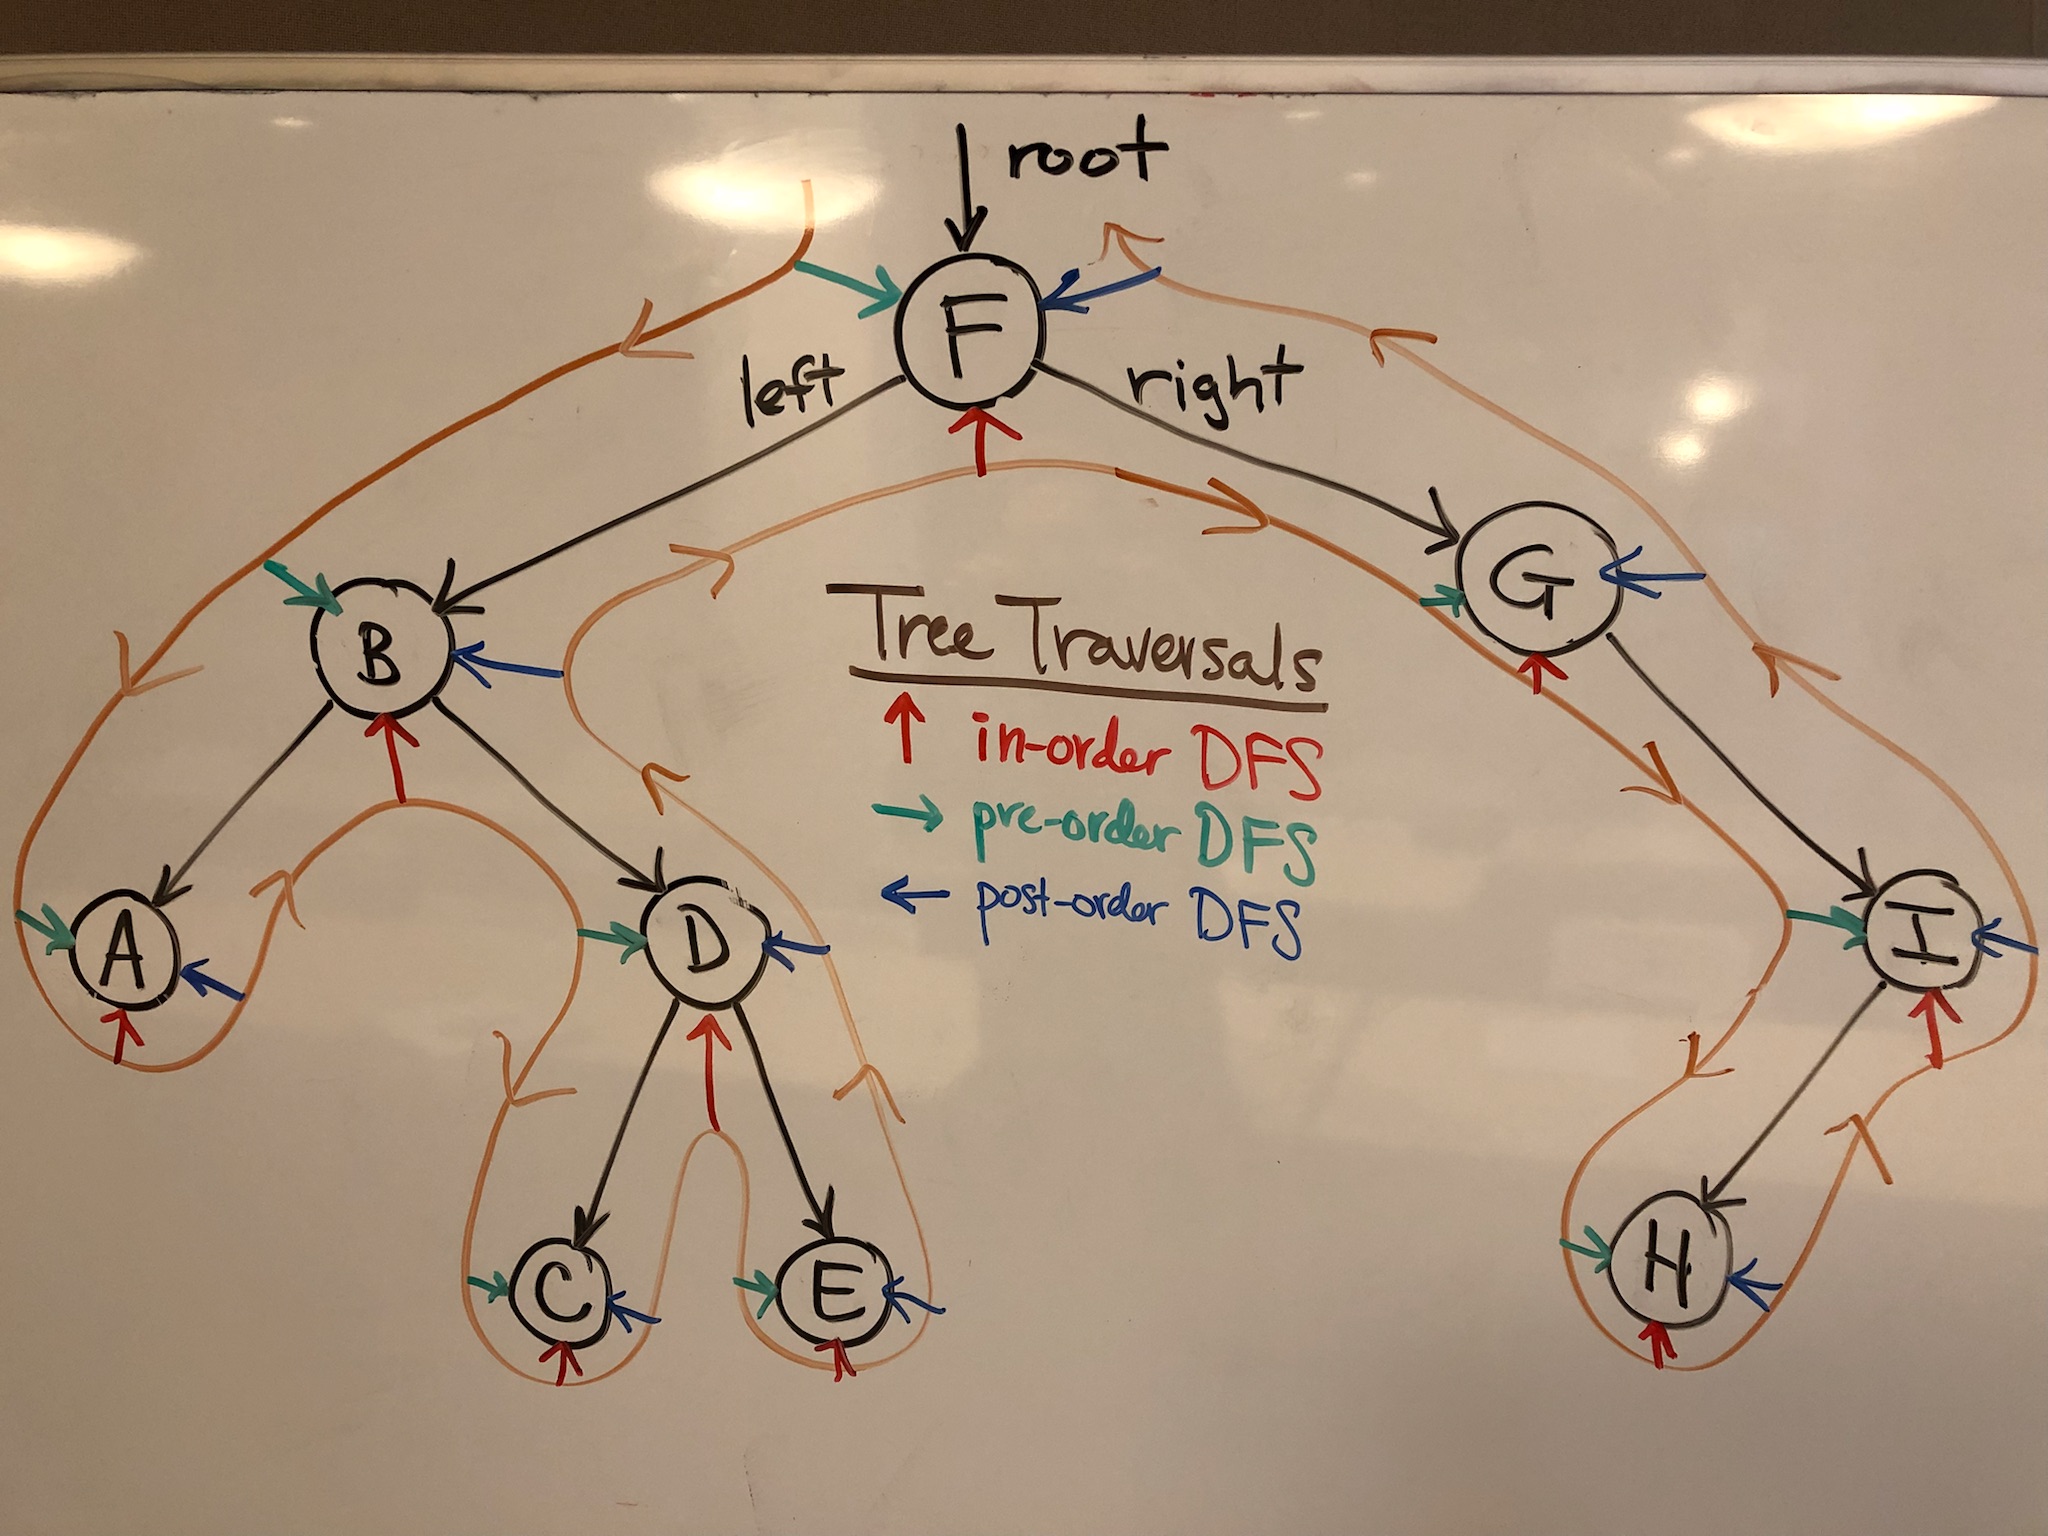 root
F
left
right
G
B
Tree Traversals
↑ in-order DFS
→ pre-order DFS
← post-order DFS
A
D
I
C
E
H